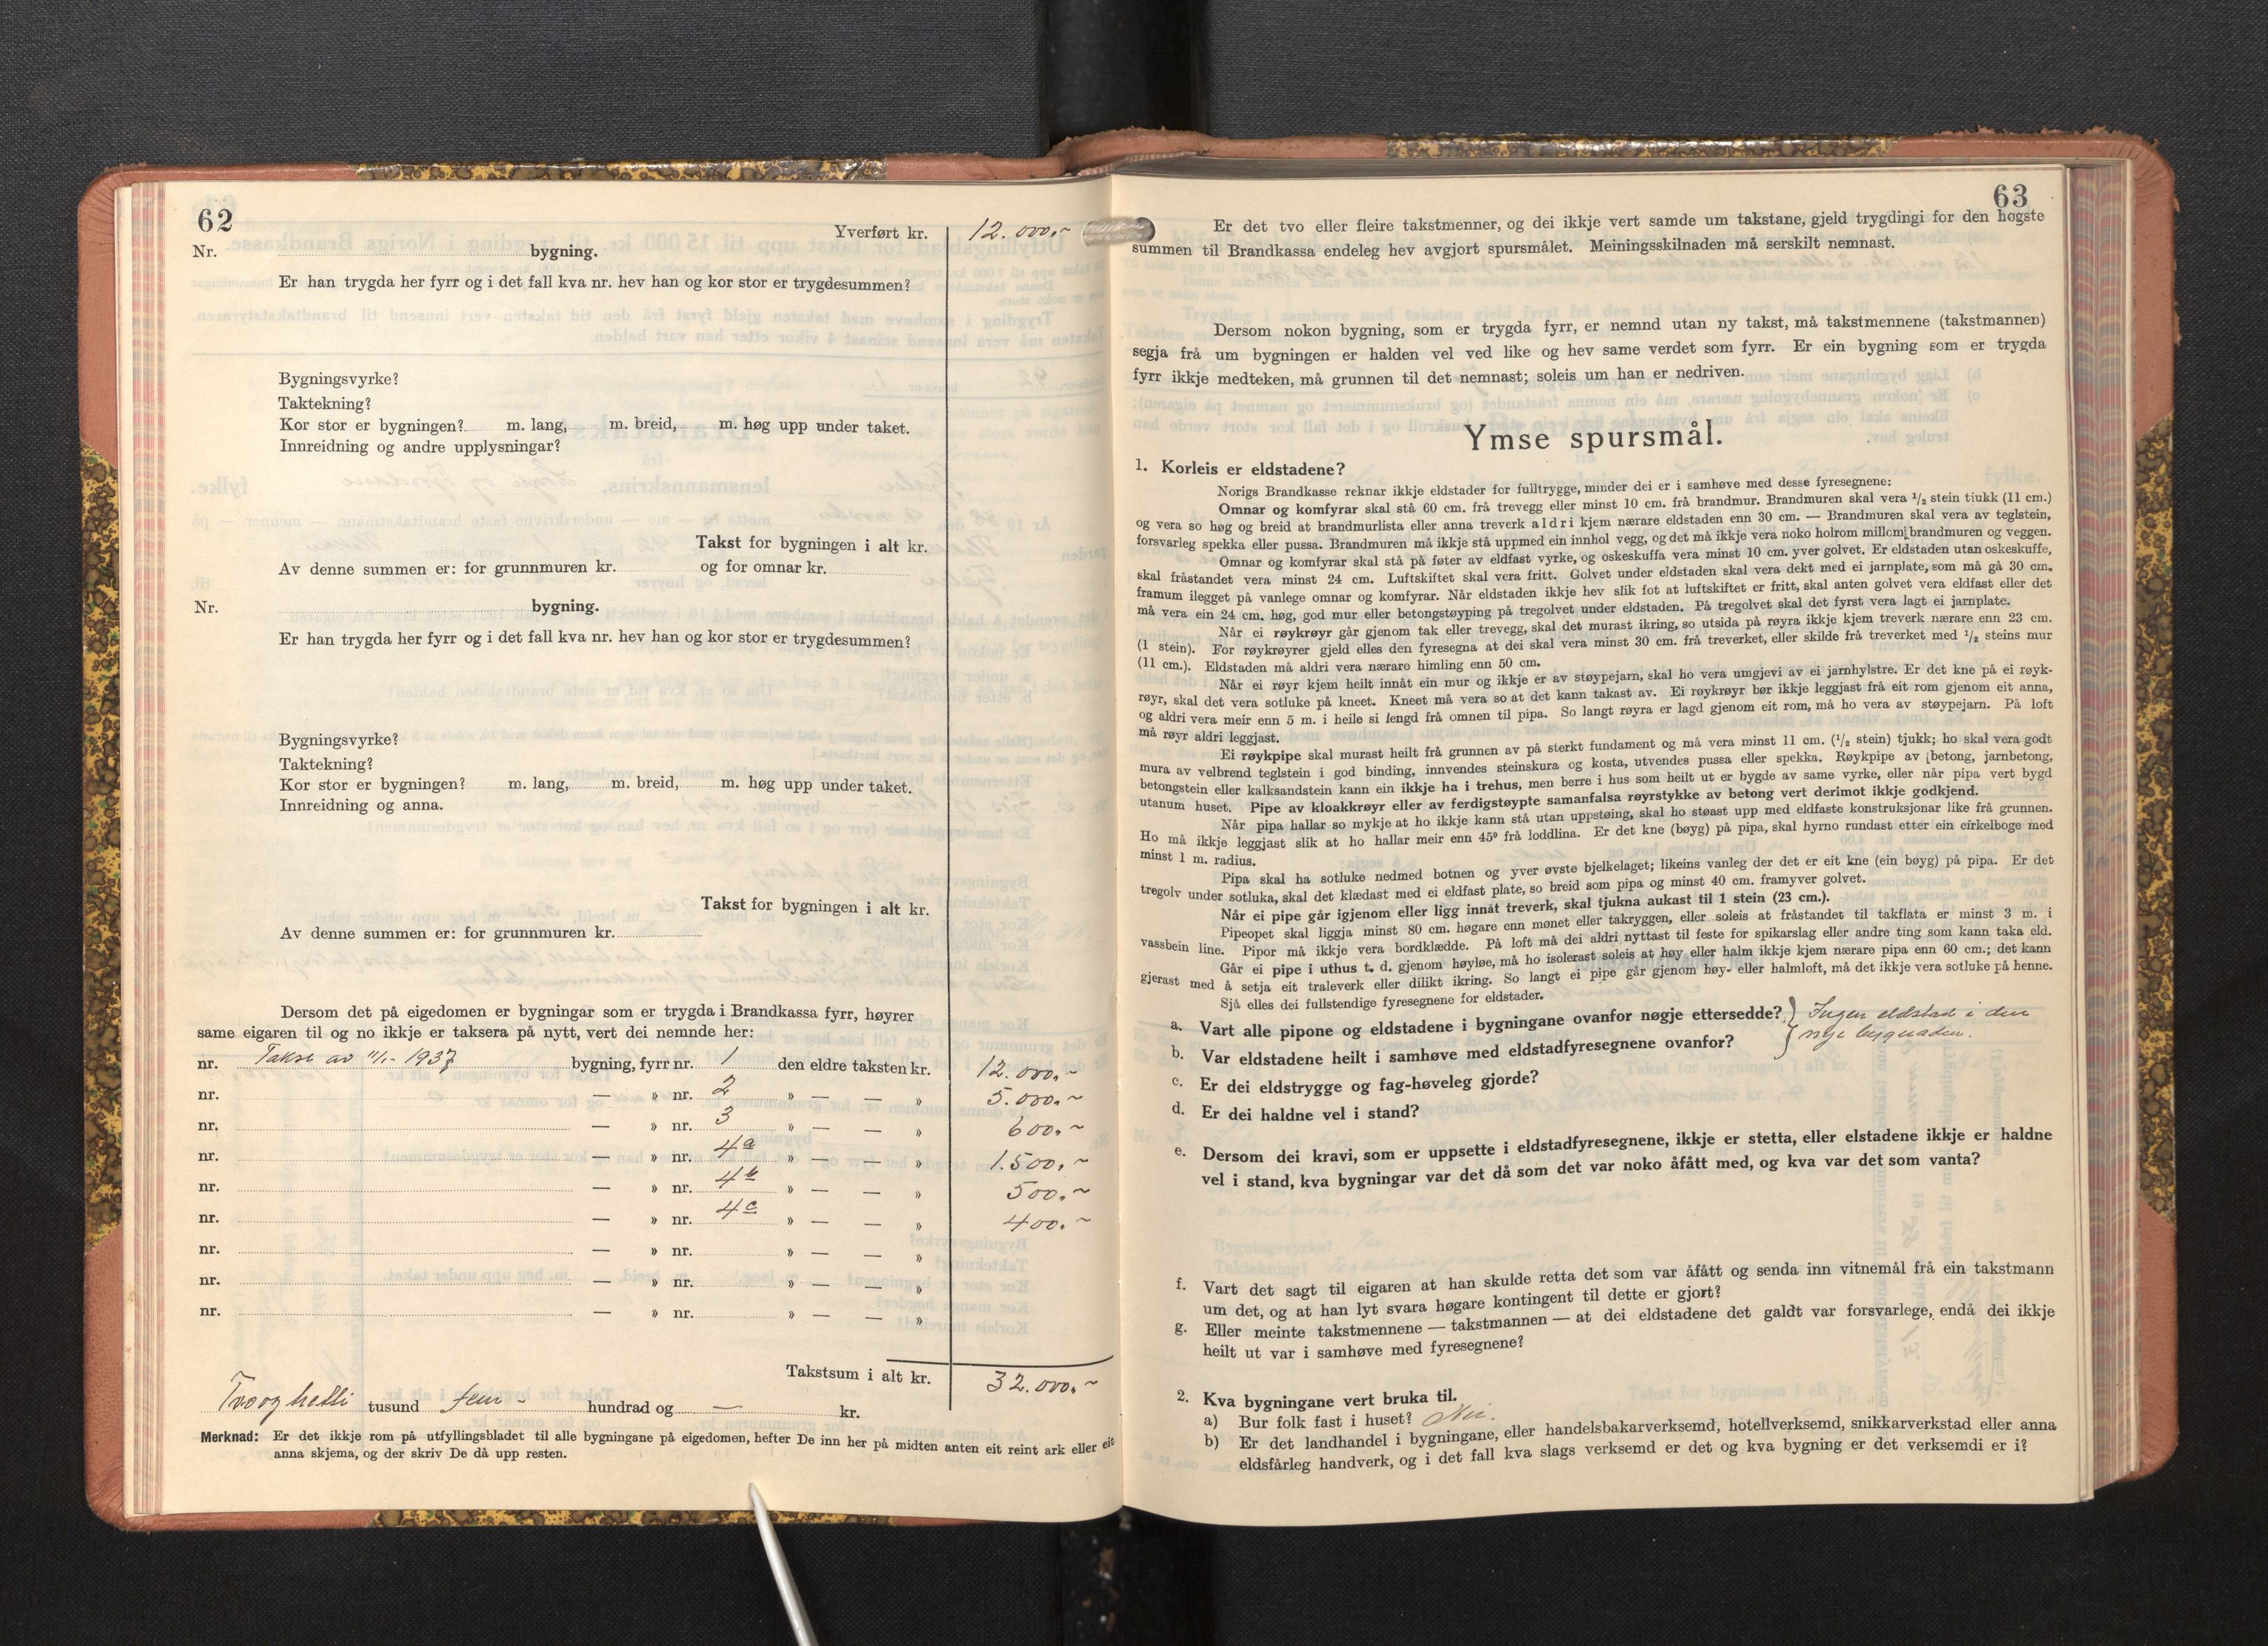 62
Yverført kr. 12.000,-
Nr. bygning.
Er han trygda her fyrr og i det fall kva nr. hev han og kor stor er trygdesummen?
Bygningsvyrke?
Taktekning?
Kor stor er bygningen? m. lang, m. breid, m. høg upp under taket.
Innreidning og andre upplysningar?
Takst for bygningen i alt kr.
Av denne summen er: for grunnmuren kr. og for omnar kr.
Nr. bygning.
Er han trygda her fyrr og i det fall kva nr. hev han og kor stor er trygdesummen?
Bygningsvyrke?
Taktekning?
Kor stor er bygningen? m. lang, m. breid, m. høg upp under taket.
Innreidning og anna.
Takst for bygningen i alt kr.
Av denne summen er: for grunnmuren kr.
Dersom det på eigedomen er bygningar som er trygda i Brandkassa fyrr, høyrer
same eigaren til og no ikkje er taksera på nytt, vert dei nemnde her:
nr. Takst av 11/1- 1937 bygning, fyrr nr. 1 den eldre taksten kr. 12.000,-
nr. — » nr. 2 » — — » 5.000,-
nr. — » nr. 3 » — — » 600,-
nr. — » nr. 4a » — — » 1.500,-
nr. — » nr. 4b » — — » 500,-
nr. — » nr. 4c » — — » 400,-
nr. — » nr. » — — »
nr. — » nr. » — — »
nr. — » nr. » — — »
Takstsum i alt kr. 32.000,-
tusund hundrad og — kr.
Merknad: Er det ikkje rom på utfyllingsbladet til alle bygningane på eigedomen, hefter De inn her på midten anten eit reint ark eller eit
anna skjema, og der skriv De då upp resten.
63
Er det tvo eller fleire takstmenner, og dei ikkje vert samde um takstane, gjeld trygdingi for den høgste
summen til Brandkassa endeleg hev avgjort spursmålet. Meiningsskilnaden må serskilt nemnast.
Dersom nokon bygning, som er trygda fyrr, er nemnd utan ny takst, må takstmennene (takstmannen)
segja frå um bygningen er halden vel ved like og hev same verdet som fyrr. Er ein bygning som er trygda
fyrr ikkje medteken, må grunnen til det nemnast; soleis um han er nedriven.
Ymse spursmål.
1. Korleis er eldstadene?
Norigs Brandkasse reknar ikkje eldstader for fulltrygge, minder dei er i samhøve med desse fyresegnene:
Omnar og komfyrar skal stå 60 cm. frå trevegg eller minst 10 cm. frå brandmur. Brandmuren skal vera 1/2 stein tjukk (11 cm.)
og vera so høg og breid at brandmurlista eller anna treverk aldri kjem nærare eldstaden enn 30 cm. — Brandmuren skal vera av teglstein,
forsvarleg spekka eller pussa. Brandmuren må ikkje stå uppmed ein innhol vegg, og det må ikkje vera noko holrom millom brandmuren og veggen.
Omnar og komfyrar skal stå på føter av eldfast vyrke, og oskeskuffa vera minst 10 cm. yver golvet. Er eldstaden utan oskeskuffe,
skal fråstandet vera minst 24 cm. Luftskiftet skal vera fritt. Golvet under eldstaden skal vera dekt med ei jarnplate, som må gå 30 cm.
framum ilegget på vanlege omnar og komfyrar. Når eldstaden ikkje hev slik fot at luftskiftet er fritt, skal anten golvet vera eldfast eller det
må vera ein 24 cm. høg, god mur eller betongstøyping på tregolvet under eldstaden. På tregolvet skal det fyrst vera lagt ei jarnplate.
Når ei røykrøyr går gjenom tak eller trevegg, skal det murast ikring, so utsida på røyra ikkje kjem treverk nærare enn 23 cm.
(1 stein). For røykrøyrer gjeld elles den fyresegna at dei skal vera minst 30 cm. frå treverket, eller skilde frå treverket med 1/2 steins mur
(11 cm.). Eldstaden må aldri vera nærare himling enn 50 cm.
Når ei røyr kjem heilt innåt ein mur og ikkje er av støypejarn, skal ho vera umgjevi av ei jarnhylstre. Er det kne på ei røyk-
røyr, skal det vera sotluke på kneet. Kneet må vera so at det kann takast av. Ei røykrøyr bør ikkje leggjast frå eit rom gjenom eit anna,
og aldri vera meir enn 5 m. i heile si lengd frå omnen til pipa. So langt røyra er lagd gjenom eit rom, må ho vera av støypejarn. På loft
må røyr aldri leggjast.
Ei røykpipe skal murast heilt frå grunnen av på sterkt fundament og må vera minst 11 cm. (1/2 stein) tjukk; ho skal vera godt
mura av velbrend teglstein i god binding, innvendes steinskura og kosta, utvendes pussa eller spekka. Røykpipe av betong, jarnbetong,
betongstein eller kalksandstein kann ein ikkje ha i trehus, men berre i hus som heilt ut er bygde av same vyrke, eller når pipa vert bygd
utanum huset. Pipe av kloakkrøyr eller av ferdigstøypte samanfalsa røyrstykke av betong vert derimot ikkje godkjend.
Når pipa hallar so mykje at ho ikkje kann stå utan uppstøing, skal ho støast upp med eldfaste konstruksjonar like frå grunnen.
Ho må ikkje leggjast slik at ho hallar meir enn 45° frå loddlina. Er det kne (bøyg) på pipa, skal hyrno rundast etter ein cirkelboge med
minst 1 m. radius.
Pipa skal ha sotluke nedmed botnen og yver øvste bjelkelaget; likeins vanleg der det er eit kne (ein bøyg) på pipa. Er det
tregolv under sotluka, skal det klædast med ei eldfast plate, so breid som pipa og minst 40 cm. framyver golvet.
Når ei pipe går igjenom eller ligg innåt treverk, skal tjukna aukast til 1 stein (23 cm.).
Pipeopet skal liggja minst 80 cm. høgare enn mønet eller takryggen, eller soleis at fråstandet til takflata er minst 3 m. i
vassbein line. Pipor må ikkje vera bordklædde. På loft må dei aldri nyttast til feste for spikarslag eller andre ting som kann taka eld.
Går ei pipe i uthus t. d. gjenom høyløe, må ho isolerast soleis at høy eller halm ikkje kjem nærare pipa enn 60 cm.; det kann
gjerast med å setja eit traleverk eller dilikt ikring. So langt ei pipe går gjenom høy- eller halmloft, må det ikkje vera sotluke på henne.
Sjå elles dei fullstendige fyresegnene for eldstader.
a. Vart alle pipone og eldstadene i bygningane ovanfor nøgje ettersedde? Ingen eldstad i den
b. Var eldstadene heilt i samhøve med eldstadfyresegnene ovanfor? nye bygnaden.
c. Er dei eldstrygge og fag-høveleg gjorde?
d. Er dei haldne vel i stand?
e. Dersom dei kravi, som er uppsette i eldstadfyresegnene, ikkje er stetta, eller elstadene ikkje er haldne
vel i stand, kva bygningar var det då som det var noko åfått med, og kva var det som vanta?
f. Vart det sagt til eigaren at han skulde retta det som var åfått og senda inn vitnemål frå ein takstmann
um det, og at han lyt svara høgare kontingent til dette er gjort?
g. Eller meinte takstmennene — takstmannen — at dei eldstadene det galdt var forsvarlege, endå dei ikkje
heilt ut var i samhøve med fyresegnene?
2. Kva bygningane vert bruka til.
a) Bur folk fast i huset? Nei.
b) Er det landhandel i bygningane, eller handelsbakarverksemd, hotellverksemd, snikkarverkstad eller anna
eldsfårleg handverk, og i det fall kva slags verksemd er det og kva bygning er det verksemdi er i?